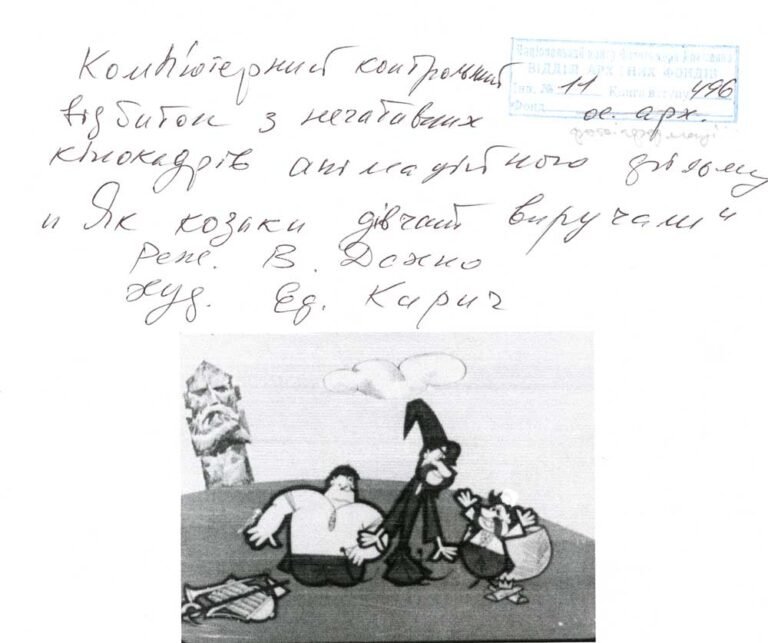 Комп'ютерний контрольний
відбиток з негативних
кінокадрів анімаційного фільму
"Як козаки дівчат виручали"
Реж. В. Дахно
худ. Ед. Кирич
ВІДДІЛ АРХІВНИХ ФОНДІВ
Інв. № 11 Книга вступу 496
Фонд ос. арх.